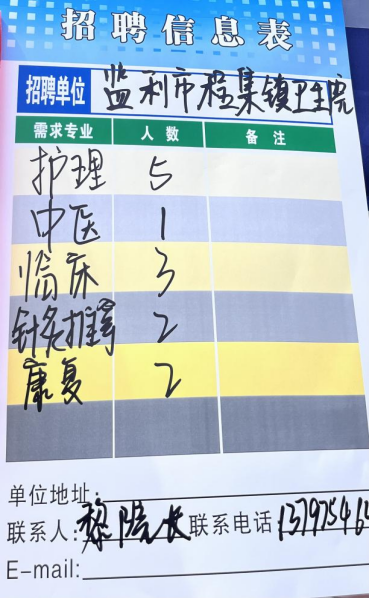 招聘信息表
招聘单位 监利市程集镇卫生院
需求专业 人数 备注
护理 5
中医 1
临床 3
针灸推拿 2
康复 2
单位地址:
联系人: 黎院长 联系电话: 13797546
E-mail: